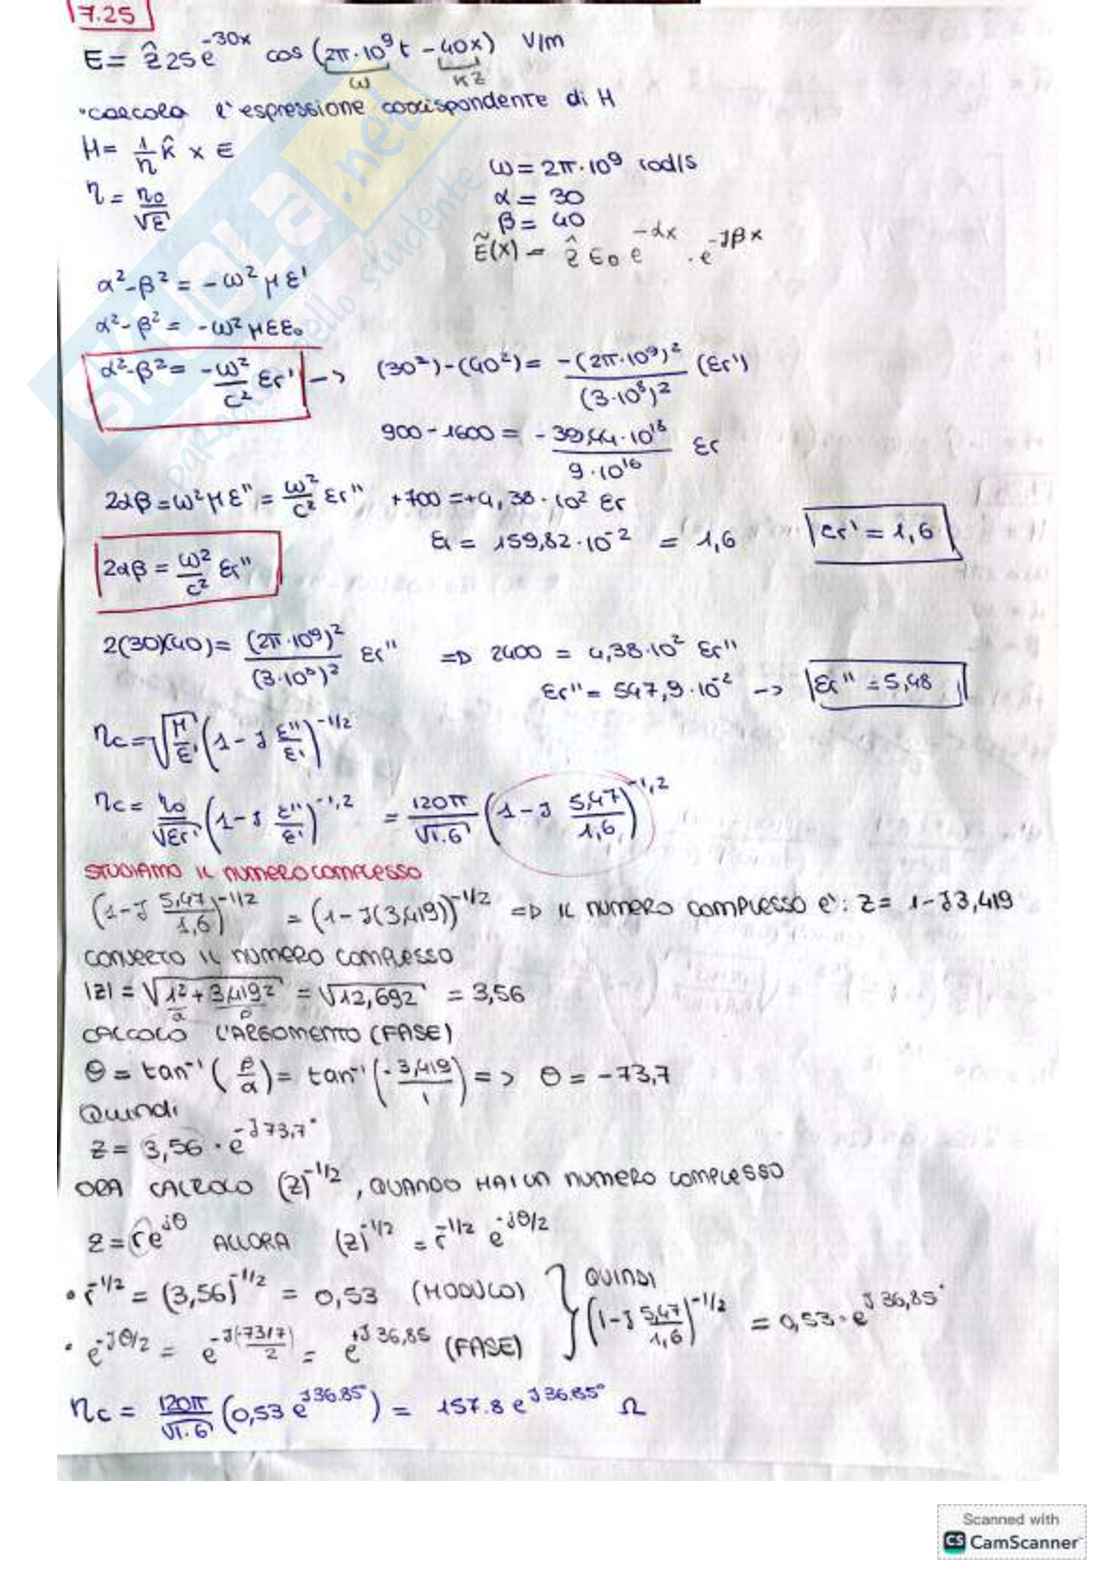 7.25
E = ẑ 25 e^{-30x} cos (2π·10⁹t - 40x) V/m
ω kz
•calcola l'espressione corrispondente di H
H = 1/η k̂ x E
η = η₀/√ε
ω = 2π·10⁹ rad/s
α = 30
β = 40
Ẽ(x) = ẑ E₀ e^{-αx} · e^{-Jβx}
α²-β² = -ω² μ ε'
α²-β² = -ω² μ ε ε₀
α²-β² = -ω²/c² εr' -> (30²)-(40²) = -(2π·10⁹)²/(3·10⁸)² (εr')
900 - 1600 = - 39,44·10¹⁸/9·10¹⁶ εr
2αβ = ω² μ ε'' = ω²/c² εr'' +700 = +4,38·10² εr
εr = 159,82·10⁻² = 1,6 εr' = 1,6
2αβ = ω²/c² εr''
2(30)(40) = (2π·10⁹)²/(3·10⁸)² εr'' =D 2400 = 4,38·10² εr''
εr'' = 547,9·10⁻² -> εr'' = 5,48
ηc = √(μ/ε') (1 - J ε''/ε')^{-1/2}
ηc = η₀/√εr' (1 - J ε''/ε')^{-1,2} = 120π/√1.6 (1 - J 5,47/1,6)^{-1,2}
STUDIAMO IL NUMERO COMPLESSO
(1 - J 5,47/1,6)^{-1/2} = (1 - J(3,419))^{-1/2} =D IL NUMERO COMPLESSO e': z = 1 - J3,419
CONVERTO IL NUMERO COMPLESSO
|z| = √(1² + 3,419²) = √12,692 = 3,56
a β
CALCOLO L'ARGOMENTO (FASE)
θ = tan⁻¹ (β/α) = tan⁻¹ (-3,419/1) => θ = -73,7
Quindi
z = 3,56 · e^{-J73,7°}
ORA CALCOLO (z)^{-1/2}, QUANDO HAI UN NUMERO COMPLESSO
z = re^{Jθ} ALLORA (z)^{-1/2} = r^{-1/2} e^{-Jθ/2}
• r^{-1/2} = (3,56)^{-1/2} = 0,53 (MODULO) } QUINDI
• e^{-Jθ/2} = e^{-J(-73,7)/2} = e^{+J36,85} (FASE) (1 - J 5,47/1,6)^{-1/2} = 0,53 · e^{J36,85°}
ηc = 120π/√1.6 (0,53 e^{J36.85°}) = 157.8 e^{J36.85°} Ω
Scanned with
CS CamScanner